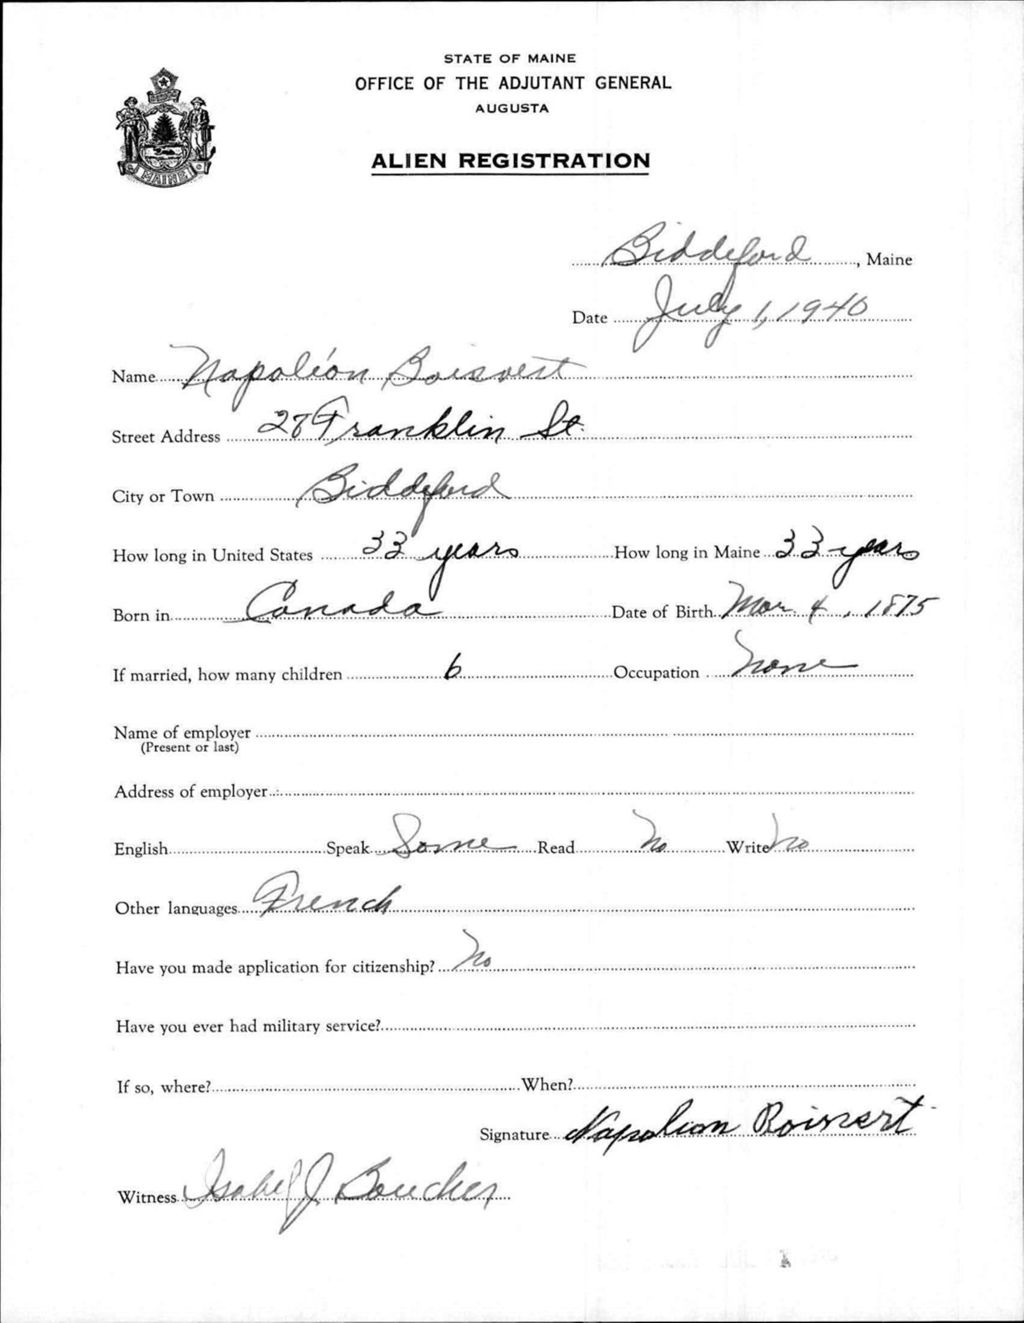 STATE OF MAINE
OFFICE OF THE ADJUTANT GENERAL
AUGUSTA
ALIEN REGISTRATION
MAINE
Biddeford, Maine
Date July 1, 1940
Name Napoléon Boisvert
Street Address 27 Franklin St.
City or Town Biddeford
How long in United States 33 years How long in Maine 33 years
Born in Canada Date of Birth Mar. 4, 1875
If married, how many children 6 Occupation None
Name of employer
(Present or last)
Address of employer
English Speak Some Read No Write No
Other languages French
Have you made application for citizenship? No
Have you ever had military service?
If so, where? When?
Signature Napoleon Boisvert
Witness Isabel J. Boucher